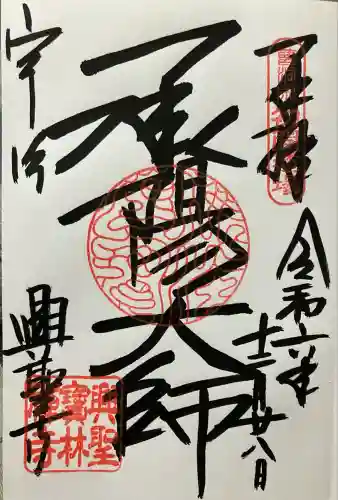 奉拝
令和六年
十二月廿八日
承陽大師
宇治
興聖寺
興聖
寳林
禅寺